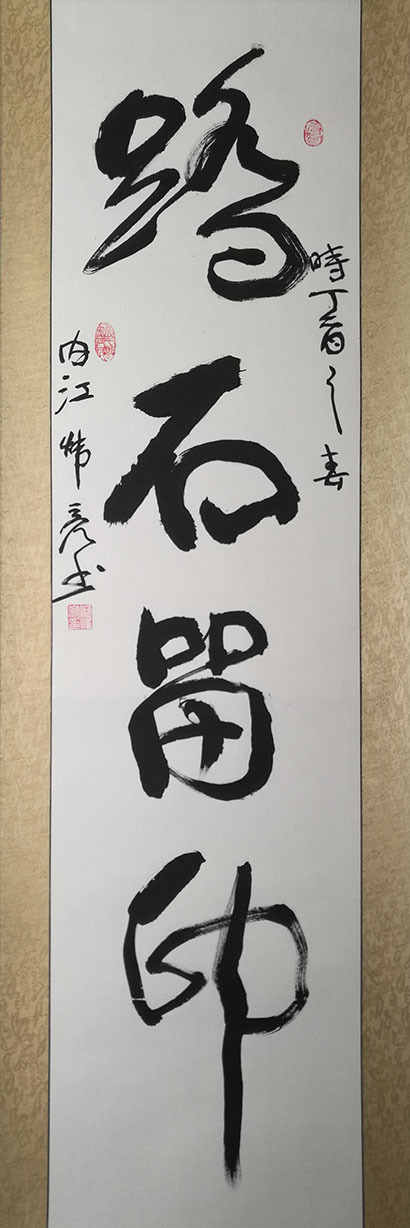 時丁酉之春
踏石留印
内江炜亮书